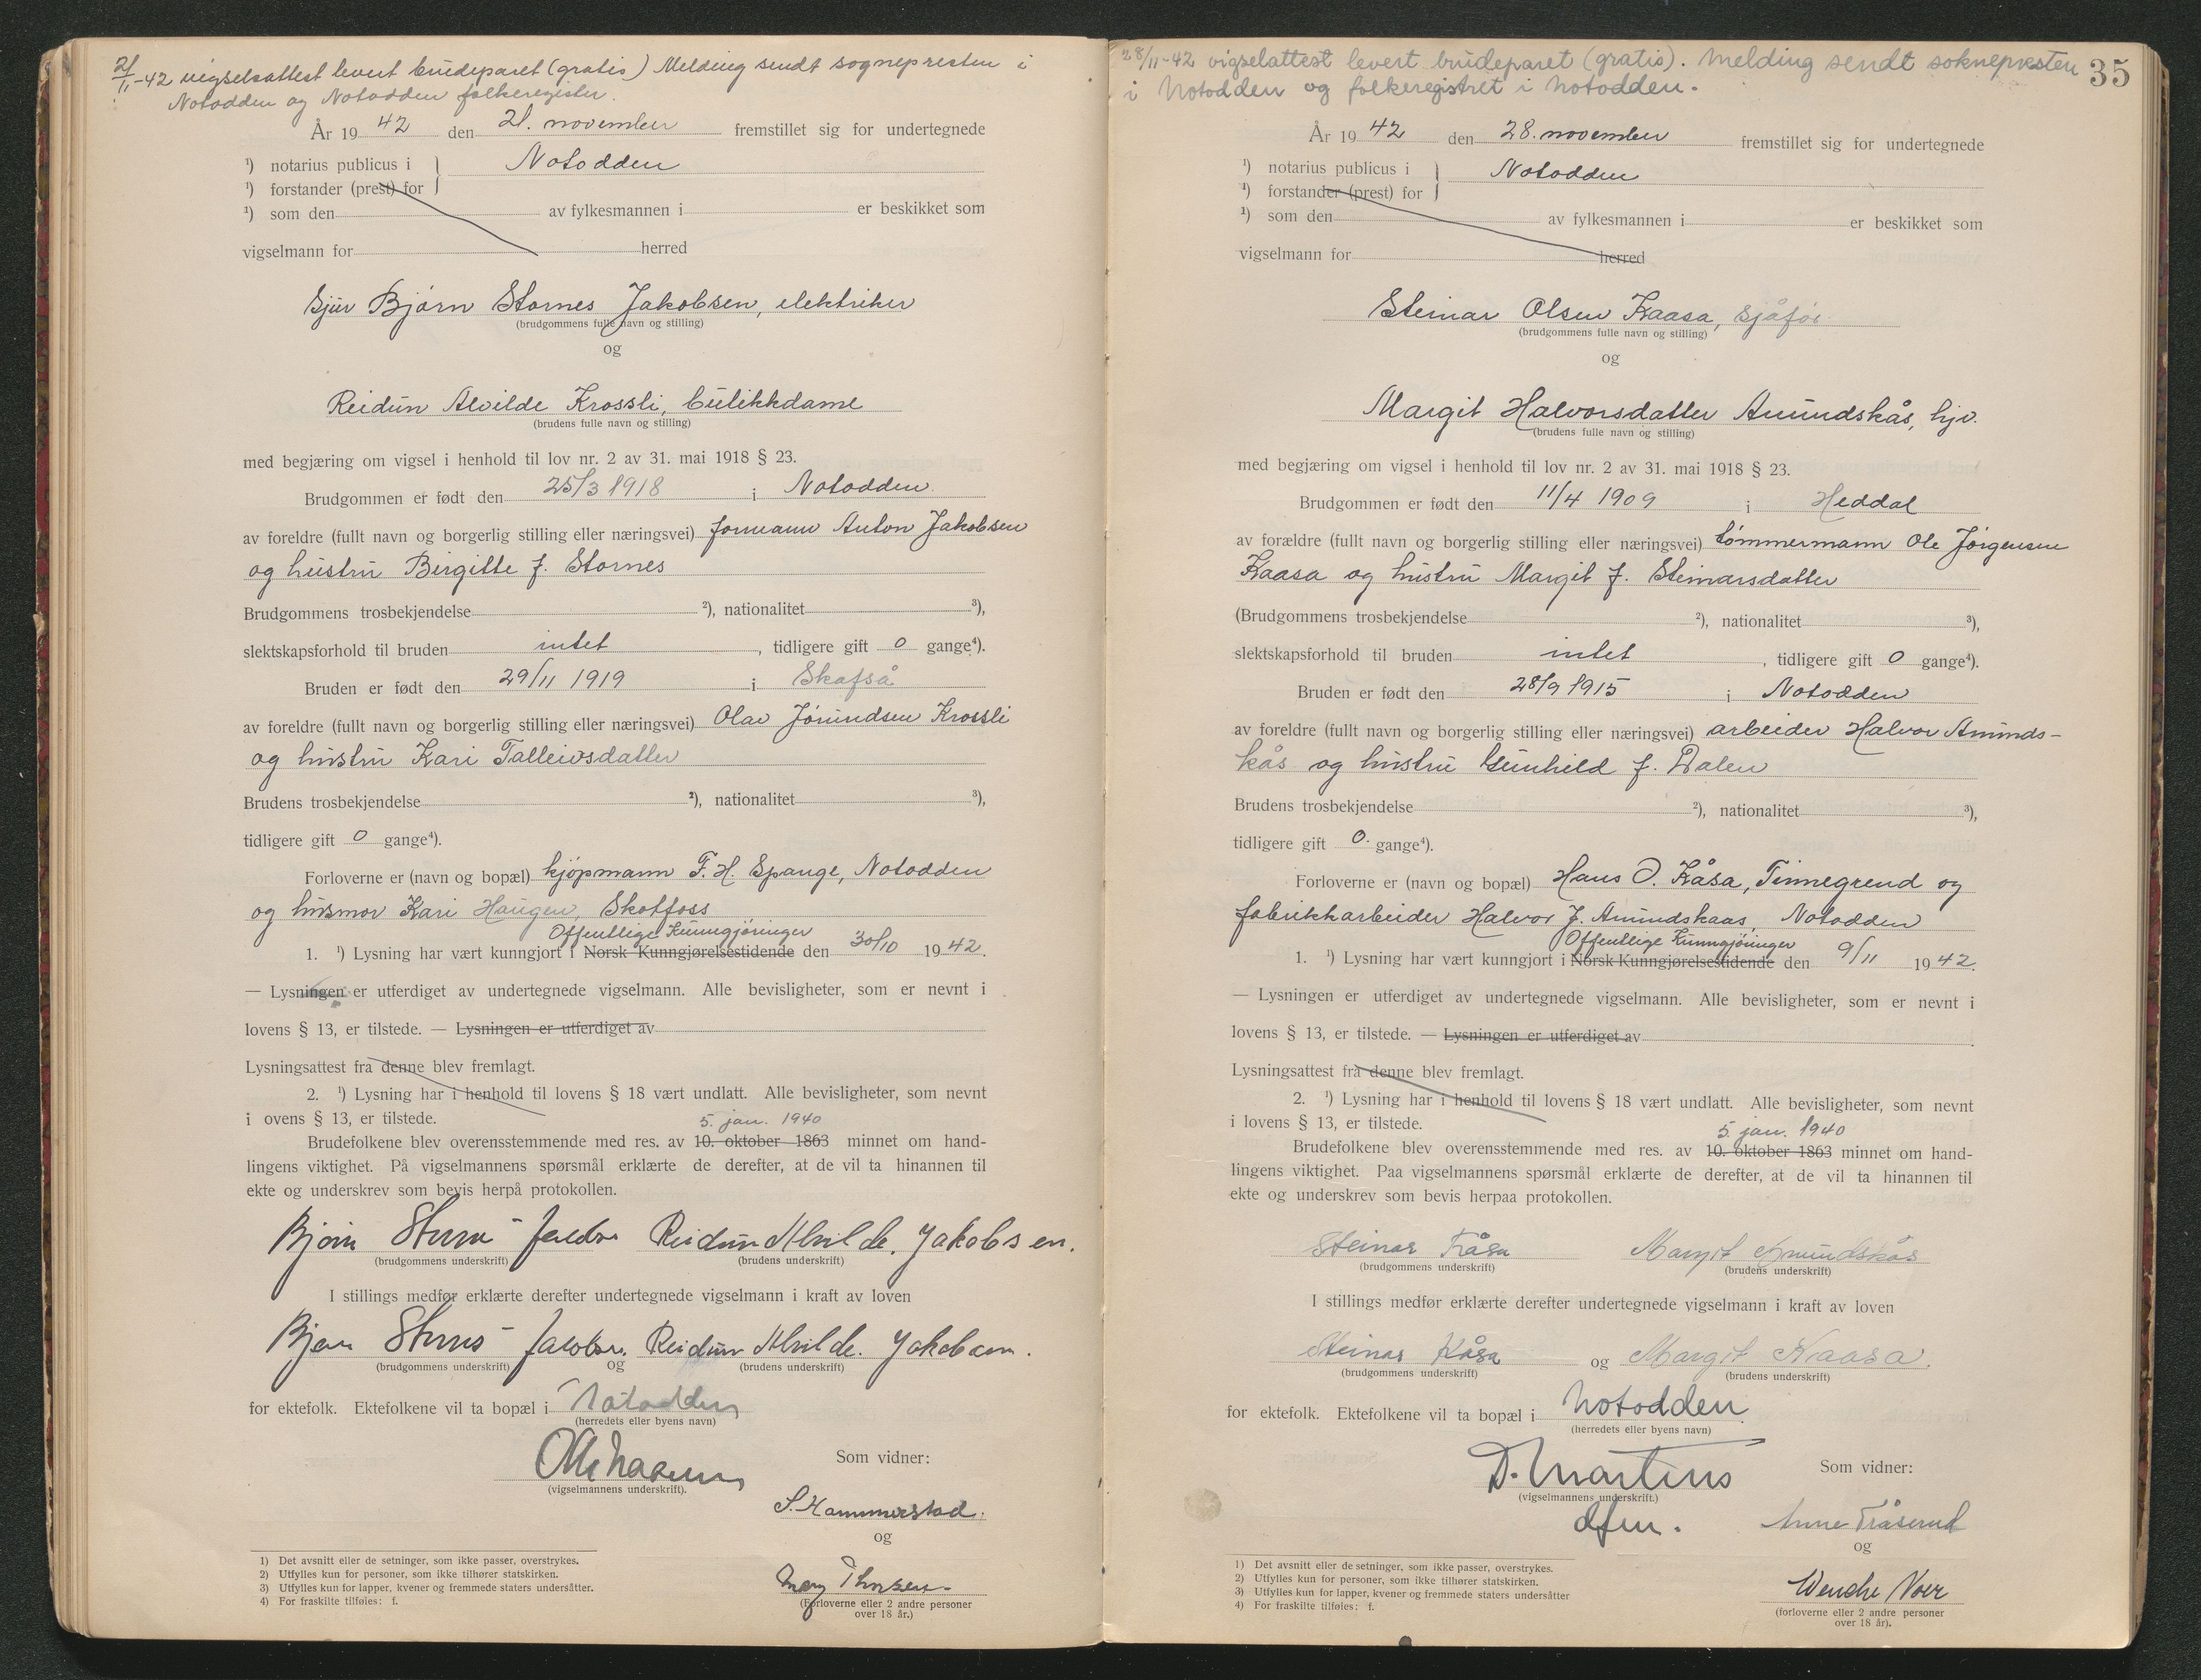 21/11-42 vigselsattest levert brudeparet (gratis) Melding sendt sognepresten i
Notodden og Notodden folkeregister.
År 19 42 den 21. november fremstillet sig for undertegnede
¹) notarius publicus i } Notodden
¹) forstander (prest) for
¹) som den av fylkesmannen i er beskikket som
vigselmann for herred
Sjur Bjørn Stornes Jakobsen, elektriker
(brudgommens fulle navn og stilling)
og
Reidun Alvilde Krossli, butikkdame
(brudens fulle navn og stilling)
med begjæring om vigsel i henhold til lov nr. 2 av 31. mai 1918 § 23.
Brudgommen er født den 25/3 1918 i Notodden
av foreldre (fullt navn og borgerlig stilling eller næringsvei) formann Anton Jakobsen
og hustru Birgitte f. Stornes
Brudgommens trosbekjendelse ²), nationalitet ³),
slektskapsforhold til bruden intet, tidligere gift 0 gange⁴).
Bruden er født den 29/11 1919 i Skafså
av foreldre (fullt navn og borgerlig stilling eller næringsvei) Olav Jørundsen Krossli
og hustru Kari Talleivsdatter
Brudens trosbekjendelse ²), nationalitet ³),
tidligere gift 0 gange⁴).
Forloverne er (navn og bopæl) kjøpmann F. H. Spange, Notodden
og husmor Kari Haugen, Skotfoss
Offentlige Kunngjøringer
1. ¹) Lysning har vært kunngjort i Norsk Kunngjørelsestidende den 30/10 1942.
— Lysningen er utferdiget av undertegnede vigselmann. Alle bevisligheter, som er nevnt i
lovens § 13, er tilstede. — Lysningen er utferdiget av
Lysningsattest fra denne blev fremlagt.
2. ¹) Lysning har i henhold til lovens § 18 vært undlatt. Alle bevisligheter, som nevnt
i ovens § 13, er tilstede.
5. jan. 1940
Brudefolkene blev overensstemmende med res. av 10. oktober 1863 minnet om hand-
lingens viktighet. På vigselmannens spørsmål erklærte de derefter, at de vil ta hinannen til
ekte og underskrev som bevis herpå protokollen.
Bjørn Reidun Alvilde. Jakobsen.
(brudgommens underskrift) (brudens underskrift)
I stillings medfør erklærte derefter undertegnede vigselmann i kraft av loven
Reidun Alvilde. Jakobsen.
(brudgommens underskrift) og (brudens underskrift)
for ektefolk. Ektefolkene vil ta bopæl i Notodden
(herredets eller byens navn)
(vigselmannens underskrift).
Som vidner:
S. Hammerstad.
og
Mary Thorsen
(Forloverne eller 2 andre personer
over 18 år.)
1) Det avsnitt eller de setninger, som ikke passer, overstrykes.
2) Utfylles kun for personer, som ikke tilhører statskirken.
3) Utfylles kun for lapper, kvener og fremmede staters undersåtter.
4) For fraskilte tilføies: f.
35
28/11-42 vigselattest levert brudeparet (gratis). Melding sendt soknepresten
i Notodden og folkeregistret i Notodden.
År 19 42 den 28. november fremstillet sig for undertegnede
¹) notarius publicus i } Notodden
¹) forstander (prest) for
¹) som den av fylkesmannen i er beskikket som
vigselmann for herred
Steinar Olsen Kaasa, sjåfør
(brudgommens fulle navn og stilling)
og
Margit Halvorsdatter Amundskås, hjv.
(brudens fulle navn og stilling)
med begjæring om vigsel i henhold til lov nr. 2 av 31. mai 1918 § 23.
Brudgommen er født den 11/4 1909 i Heddal
av forældre (fullt navn og borgerlig stilling eller næringsvei) tømmermann Ole Jørgensen
Kaasa og hustru Margit f. Steinarsdatter
(Brudgommens trosbekjendelse ²), nationalitet ³),
slektskapsforhold til bruden intet, tidligere gift 0 gange⁴).
Bruden er født den 28/9 1915 i Notodden
av foreldre (fullt navn og borgerlig stilling eller næringsvei) arbeider Halvor Amunds-
kås og hustru Gunhild f. Dalen
Brudens trosbekjendelse ²), nationalitet ³),
tidligere gift 0. gange⁴).
Forloverne er (navn og bopæl) Hans O. Kåsa, Tinnegrend og
fabrikkarbeider Halvor J. Amundskaas, Notodden
Offentlige Kunngjøringer
1. ¹) Lysning har vært kunngjort i Norsk Kunngjørelsestidende den 9/11 1942.
— Lysningen er utferdiget av undertegnede vigselmann. Alle bevisligheter, som er nevnt i
lovens § 13, er tilstede. — Lysningen er utferdiget av
Lysningsattest fra denne blev fremlagt.
2. ¹) Lysning har i henhold til lovens § 18 vært undlatt. Alle bevisligheter, som nevnt
i lovens § 13, er tilstede.
5. jan. 1940
Brudefolkene blev overensstemmende med res. av 10. oktober 1863 minnet om hand-
lingens viktighet. Paa vigselmannens spørsmål erklærte de derefter, at de vil ta hinannen til
ekte og underskrev som bevis herpaa protokollen.
Steinar Kåsa Margit Amundskås
(brudgommens underskrift) (brudens underskrift)
I stillings medfør erklærte derefter undertegnede vigselmann i kraft av loven
Steinar Kåsa og Margit Kaasa.
(brudgommens underskrift) (brudens underskrift)
for ektefolk. Ektefolkene vil ta bopæl i Notodden
(herredets eller byens navn)
D. Martins
(vigselmannens underskrift.)
dfm.
Som vidner:
Anne Tråserud
og
Wenche Voer
(forloverne eller 2 andre personer
over 18 år).
1) Det avsnitt eller de setninger, som ikke passer, overstrykes.
2) Utfylles kun for personer, som ikke tilhører statskirken.
3) Utfylles kun for lapper, kvener og fremmede staters undersåtter
4) For fraskilte tilføies: f.